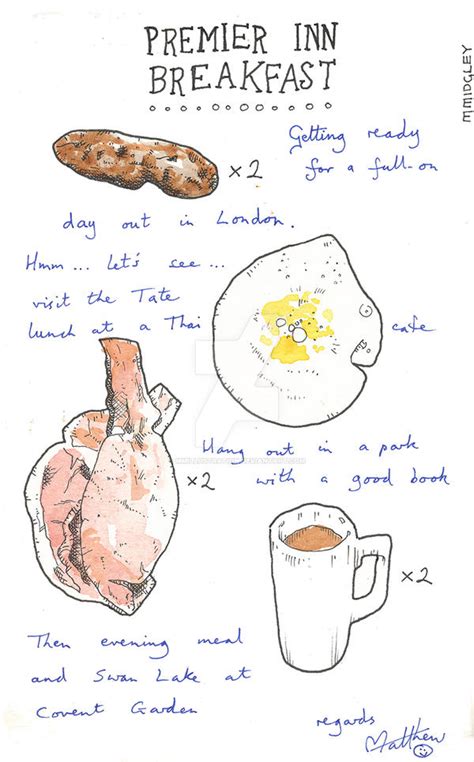 PREMIER INN
BREAKFAST
M MIDGLEY
x2
Getting ready
for a full-on
day out in London.
Hmm... let's see...
visit the Tate
lunch at a Thai cafe
Hang out in a park
x2
with a good book
x2
Then evening meal
and Swan Lake at
Covent Garden
regards
Matthew